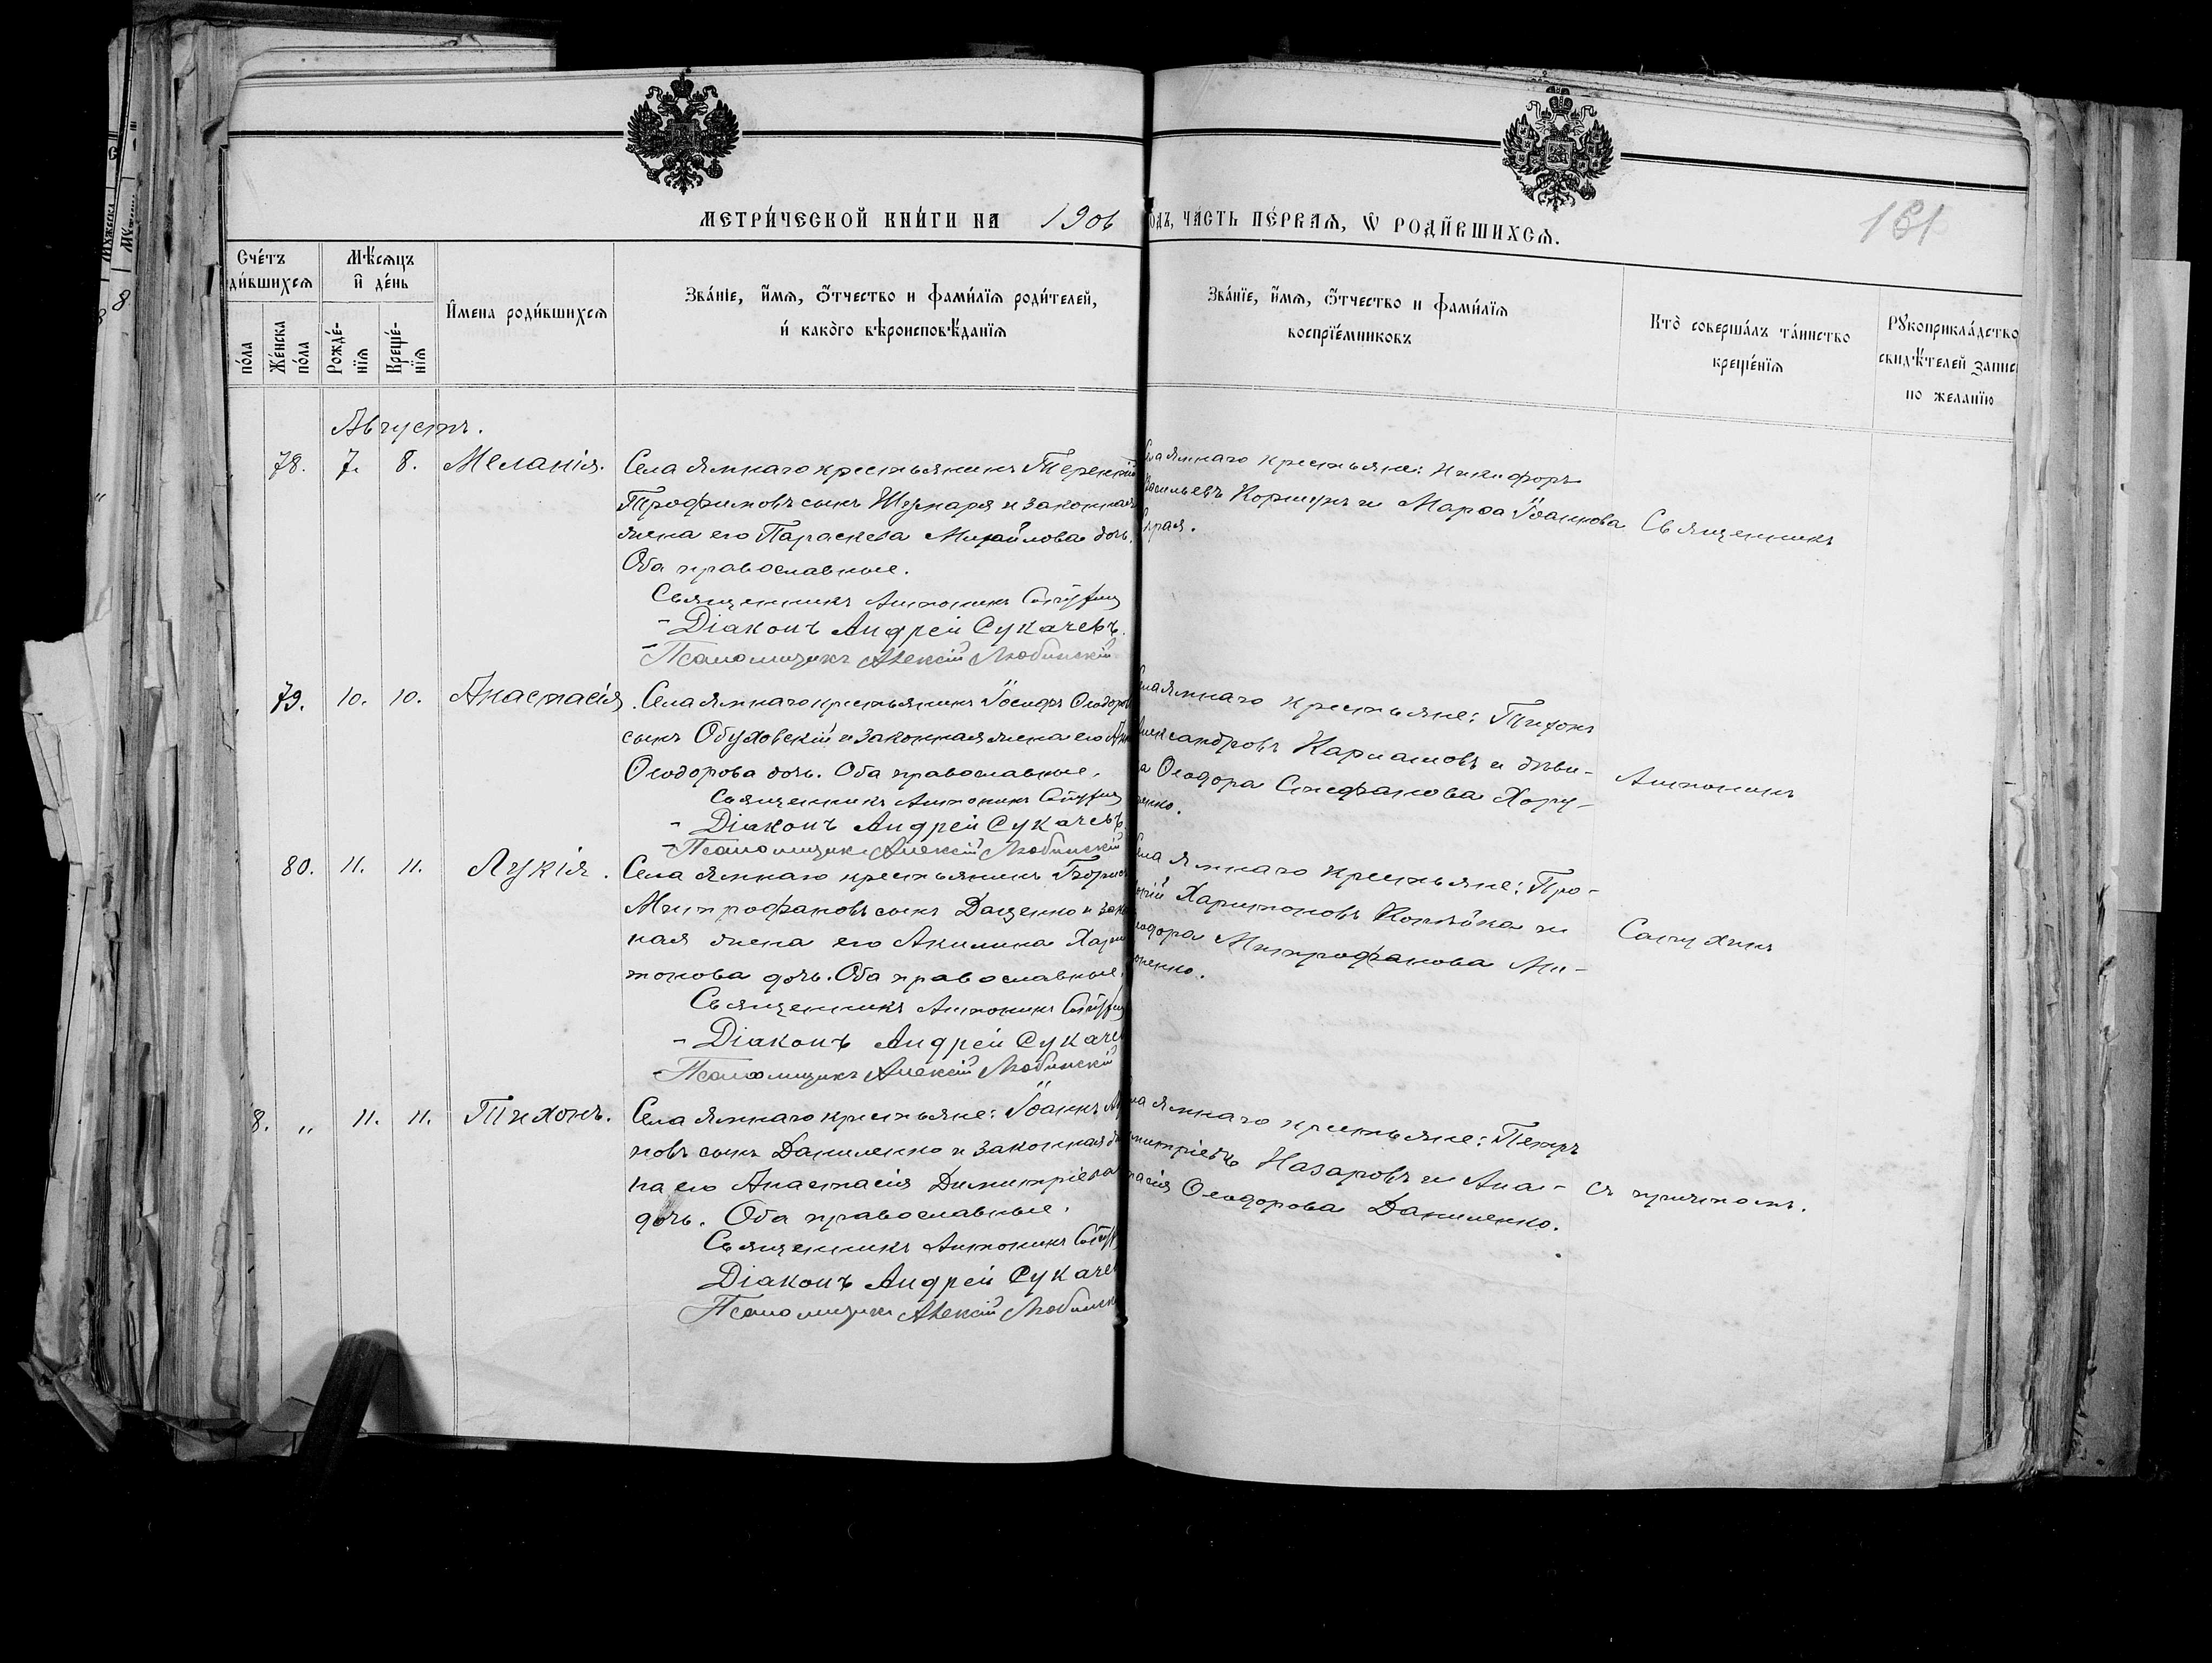 МЕТРИЧЕСКОЙ КНИГИ НА 1906
одъ, ЧАСТЬ ПЕРВАЯ, Ѡ РОДИВШИХСЯ.
181
Счетъ
дившихся
Мѣсяцъ
и день
пола
Женска
пола
Рожде-
нія
Креще-
нія
Имена родившихся
Званіе, имя, отчество и фамилія родителей,
и какого вѣроисповѣданія
Званіе, имя, отчество и фамилія
воспріемниковъ
Кто совершалъ таинство
крещенія
Рукоприкладство
свидѣтелей запис
по желанію
Августъ.
78. 7. 8. Меланія.
Села Ямнаго крестьянинъ Терентій
Трофимовъ сынъ Шумаря и законная
жена его Параскева Михайлова дочь.
Оба православные.
Священникъ Антонинъ
Діаконъ Андрей Сукачевъ.
Псаломщикъ Алексій Любинскій
ла Ямнаго крестьяне: Никифоръ
Васильевъ Коршунъ и Марѳа Іоаннова
Священникъ
79. 10. 10. Анастасія.
Села Ямнаго крестьянинъ Іосифъ Ѳеодоров
сынъ Обуховскій и законная жена его
Ѳеодорова дочь. Оба православные.
Священникъ Антонинъ
Діаконъ Андрей Сукачевъ.
Псаломщикъ Алексій Любинскій
ла Ямнаго крестьяне: Тихонъ
Александровъ Кармановъ и дѣви-
ца Ѳеодора Стефанова Хору-
женко.
Антонинъ
80. 11. 11. Лукія.
Села Ямнаго крестьянинъ Борис
Митрофановъ сынъ Даценко и зако
ная жена его Акилина Хари
тонова дочь. Оба православные.
Священникъ Антонинъ
Діаконъ Андрей Сукачев
Псаломщикъ Алексій Любинскій
ла Ямнаго крестьяне: Про-
Харитоновъ Копѣйка и
еодора Митрофанова Ми-
ненко.
Сапухинъ
8. " 11. 11. Тихонъ.
Села Ямнаго крестьяне: Іоаннъ
новъ сынъ Даниленко и законная
на его Анастасія Димитріева
дочь. Оба православные.
Священникъ Антонинъ
Діаконъ Андрей Сукачев
Псаломщикъ Алексій Любинск
ла Ямнаго крестьяне: Петръ
митріевъ Назаровъ и Ана-
тасія Ѳеодорова Даниленко.
съ причтомъ.